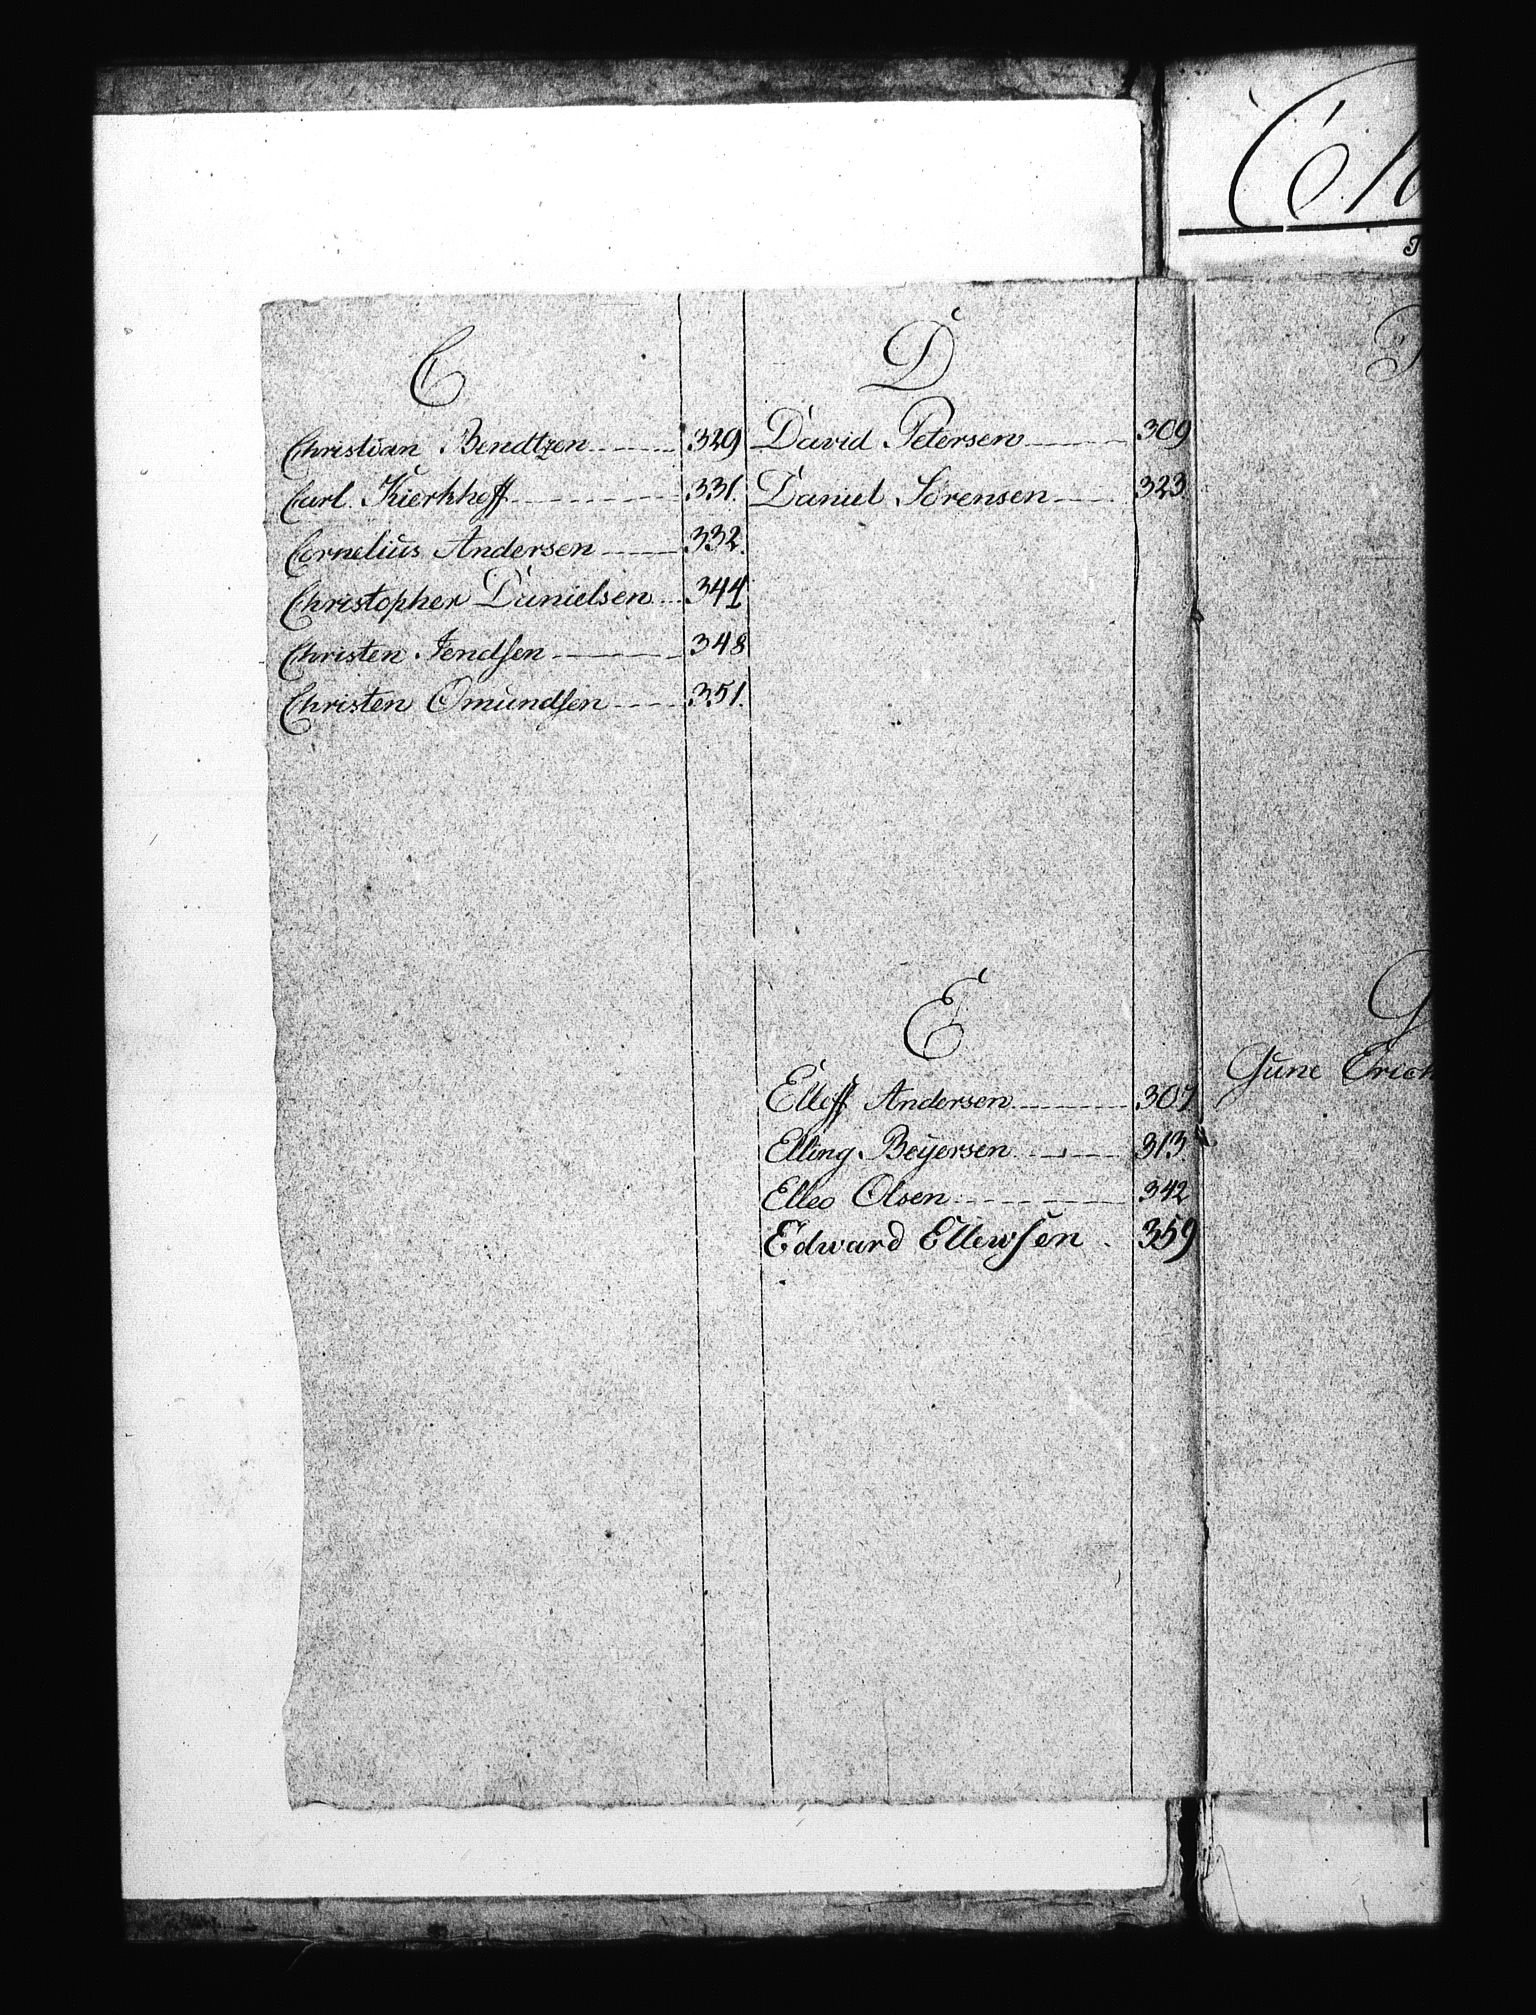 C
Christian Bendtzen 329
Carl Kierkhoff 331.
Cornelius Andersen 332.
Christopher Danielsen 344
Christen Jendsen 348
Christen Omundsen 351.
D
David Petersen 309
Daniel Sörensen 323
E
Elleff Andersen 307
Elling Beÿersen 313
Elleo Olsen 342
Edward Ellewsen 359
G
Gune Erich